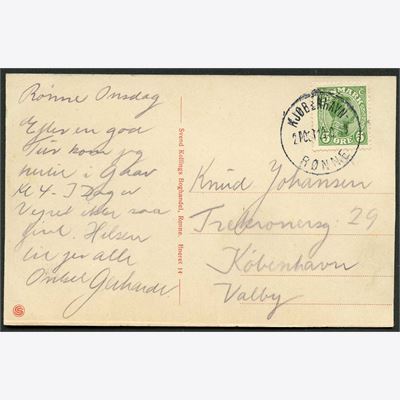 Rønne Onsdag
Efter en god
Tur kom jeg
hertil i Gaar
Kl 4. I Dag er
Vejret ikke saa
godt. Hilsen
til jer alle
Onkel Gerhardt
Svend Kollings Boghandel, Rønne. Eneret 14
KJØBENHAVN
RØNNE
DANMARK
5 ØRE 5
Knud Johansen
Trekronersg. 29
København
Valby